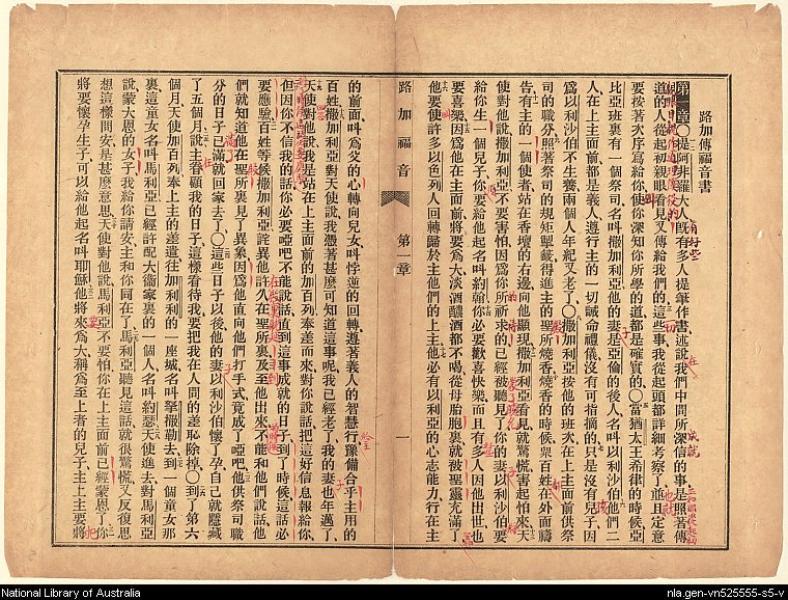 路加傳福音書
第一章〇提阿非羅大人既有多人提筆作書述說我們中間所深信的事是照著傳
道的人從起初親眼看見又傳給我們的這些事我從起頭都詳細考察了並且定意
要按著次序寫給你使你深知你所學的道都是確實的〇當猶太王希律的時候亞
比亞班裏有一個祭司名叫撒加利亞他的妻是亞倫的後人名叫以利沙伯他們二
人在上主面前都是義人遵行主的一切誡命禮儀沒有可指摘的只是沒有兒子因
爲以利沙伯不生養兩個人年紀又老了〇撒加利亞按他的班次在上主面前供祭
司的職分照著祭司的規矩掣籤得進主的聖所燒香燒香的時候衆百姓在外面禱
告有主的一個使者站在香壇的右邊向他顯現撒加利亞看見就驚慌害起怕來天
使對他說撒加利亞不要害怕因爲你所祈求的已經被聽見了你的妻以利沙伯要
給你生一個兒子你要給他起名叫約翰你必要歡喜快樂而且有多人因他出世也
要喜樂因爲他在主面前將要爲大淡酒醲酒都不喝從母胎胞裏就被聖靈充滿了
他要使許多以色列人回轉歸於主他們的上主他必有以利亞的心志能力行在主
路加福音 第一章 一
的前面叫爲父的心轉向兒女叫悖逆的回轉遵著義人的智慧行豫備合乎主用的
百姓撒加利亞對天使說我憑著甚麼可知道這事呢我已經老了我的妻也年邁了
天使對他說我是站在上主面前的加百列奉差而來對你說話把這好信息報給你
但因你不信我的話你必要啞吧不能說話直到這事成就的日子到了時候這話必
要應驗百姓等候撒加利亞詫異他許久在聖所裏及至他出來不能和他們說話他
們就知道他在聖所裏見了異象因爲他直向他們打手式竟成了啞吧他供祭司職
分的日子已滿就回家去了〇這些日子以後他的妻以利沙伯懷了孕自己就隱藏
了五個月說主眷顧我的日子這樣看待我要把我在人間的羞恥除掉〇到了第六
個月天使加百列奉上主的差遣往加利利的一座城名叫拏撒勒去到一個童女那
裏這童女名叫馬利亞已經許配大衞家裏的一個人名叫約瑟天使進去對馬利亞
說蒙大恩的女子我給你請安主和你同在了馬利亞聽見這話就很驚慌又反復思
想這樣問安是甚麼意思天使對他說馬利亞不要怕你在上主面前已經蒙恩了你
將要懷孕生子可以給他起名叫耶穌他將來爲大稱爲至上者的兒子主上主要將
National Library of Australia
nla.gen-vn525555-s5-v